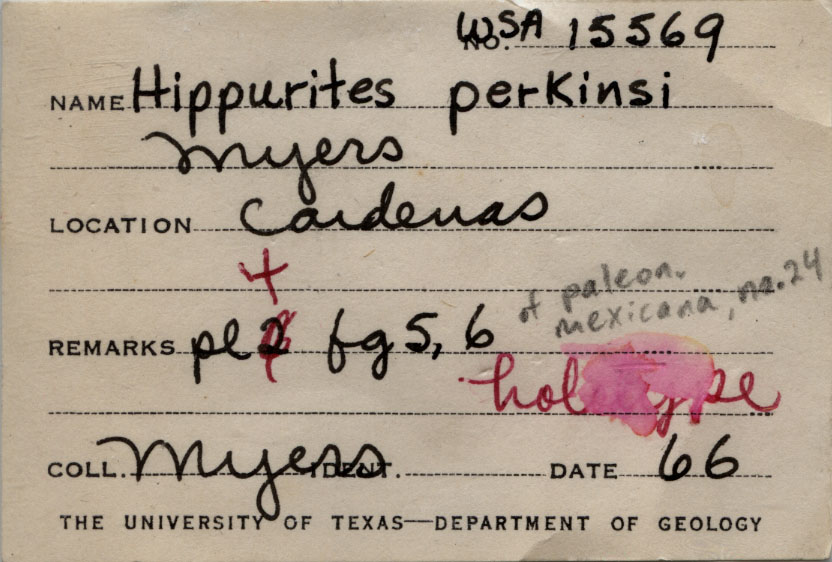 WSA
NO. 15569
NAME Hippurites perkinsi
Myers
LOCATION Cardenas
4
REMARKS pl 2 fg 5, 6
of paleon.
mexicana, no. 24
holotype
COLL. Myers IDENT. DATE 66
THE UNIVERSITY OF TEXAS—DEPARTMENT OF GEOLOGY